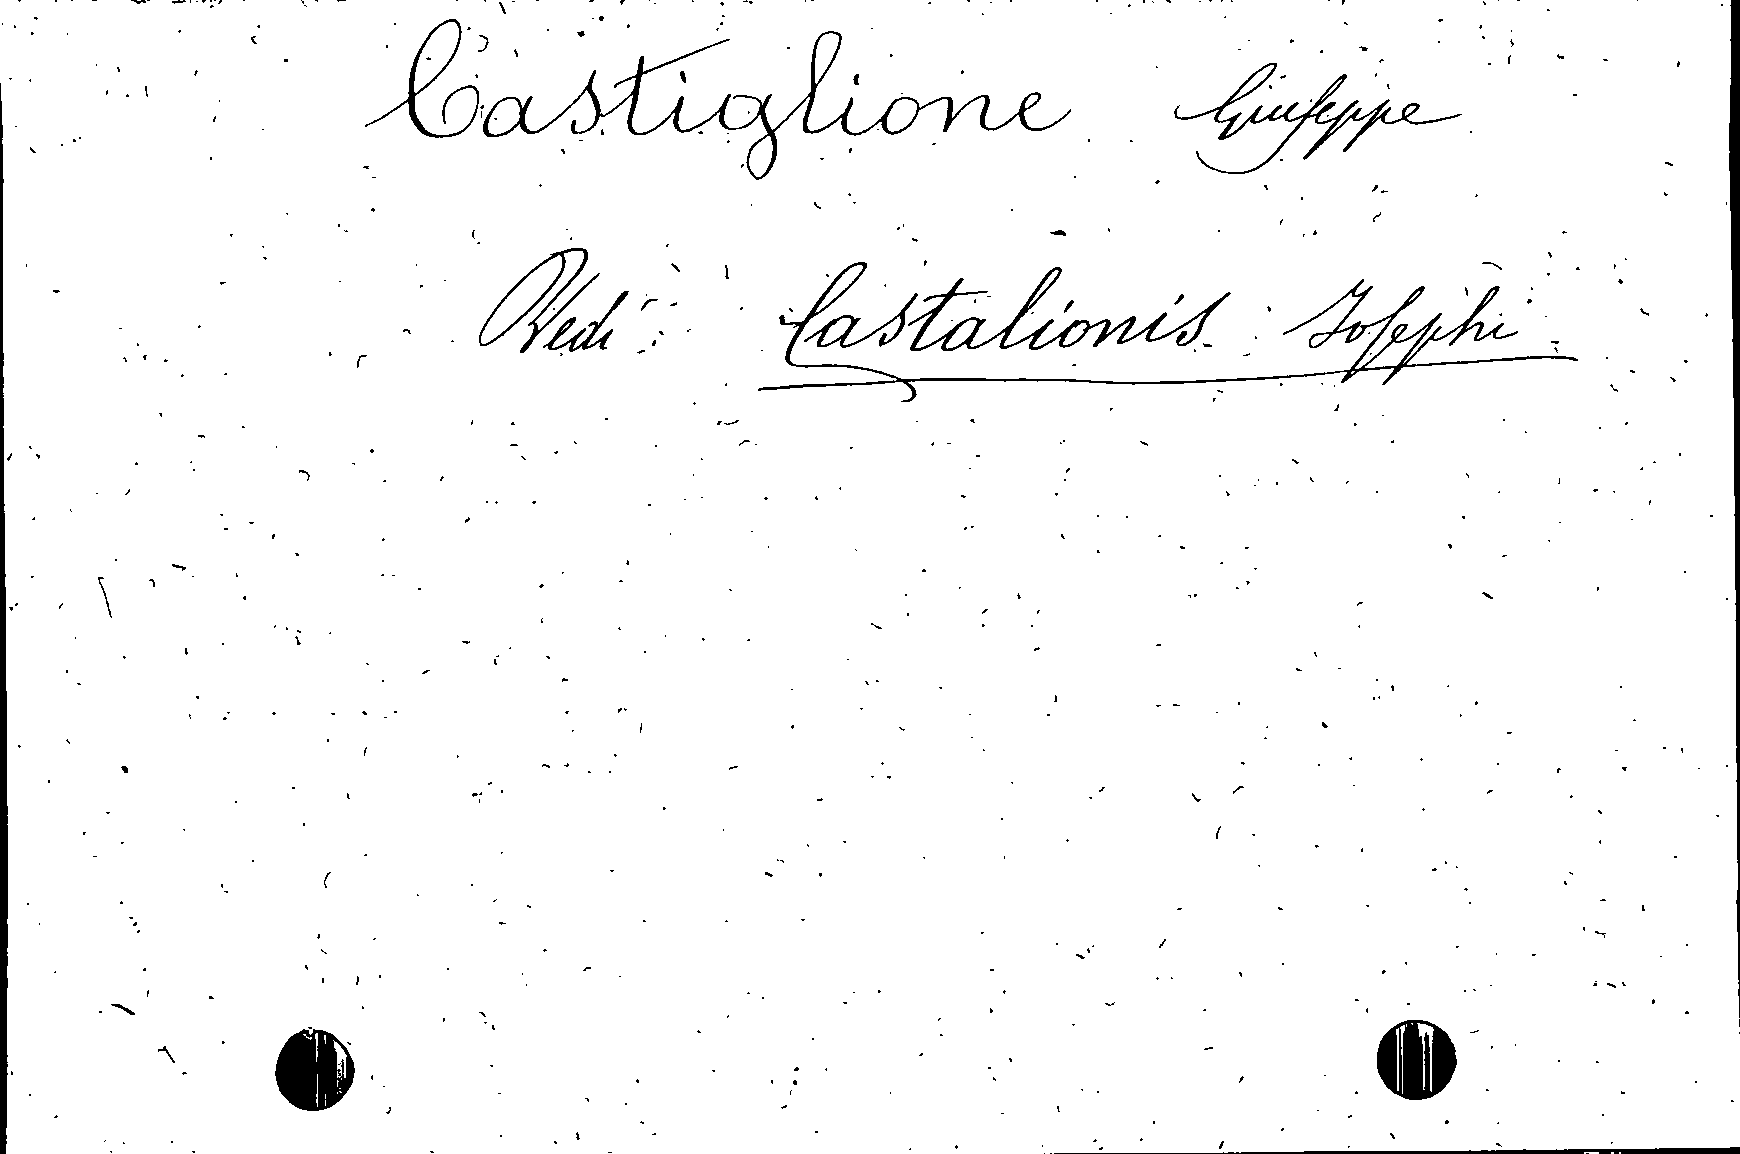 Castiglione Giuseppe
Vedi Castalionis Josephi